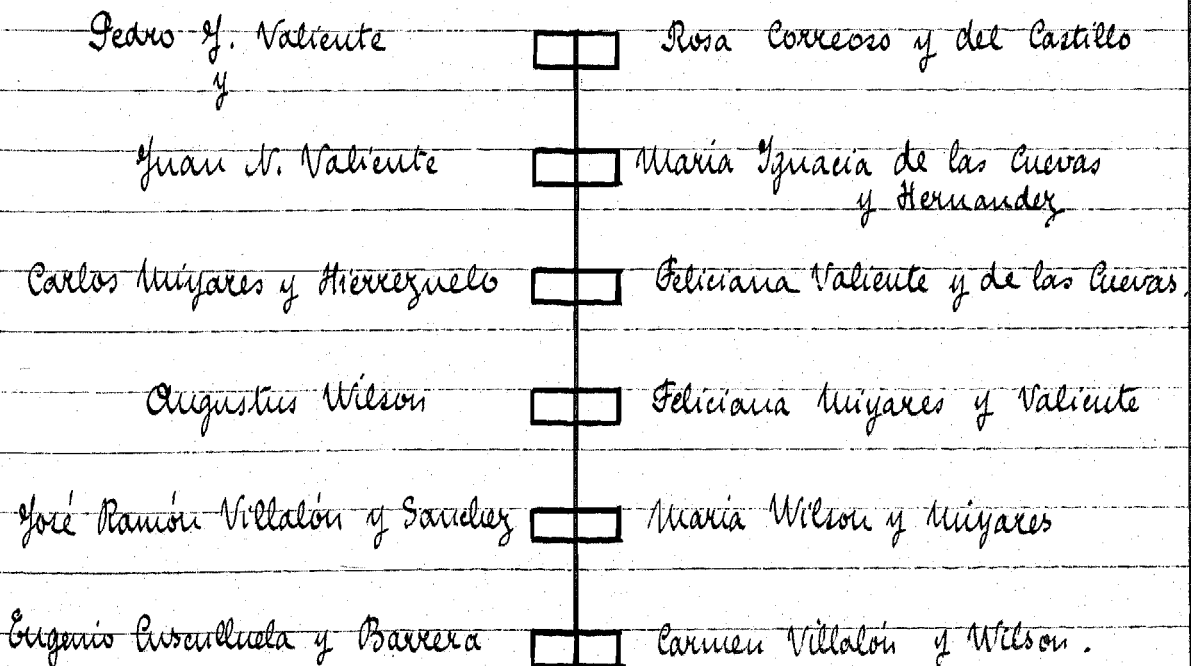 Pedro J. Valiente
y
Rosa Correoso y del Castillo
Juan N. Valiente
María Ignacia de las Cuevas
y Hernandez
Carlos Miyares y Hierrezuelo
Feliciana Valiente y de las Cuevas.
Augustus Wilson
Feliciana Miyares y Valiente
José Ramón Villalón y Sanchez
María Wilson y Miyares
Eugenio Cusculluela y Barrera
Carmen Villalón y Wilson.